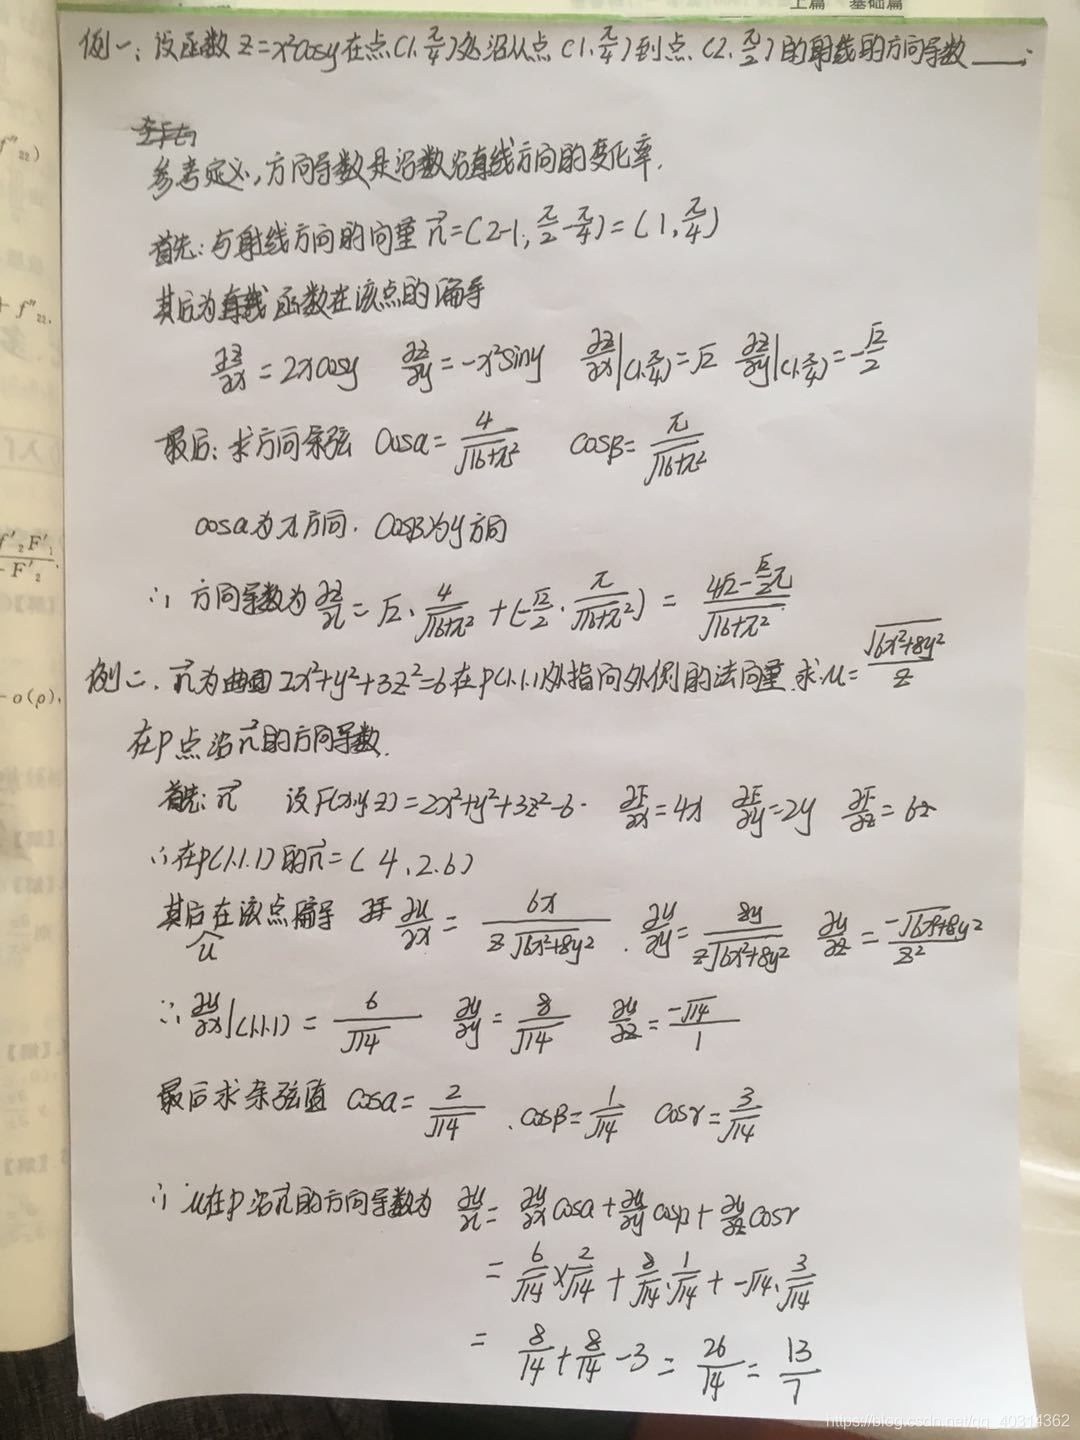 上篇 基础篇
例一:设函数 z=x²cosy在点(1,π/4)处沿从点(1,π/4)到点(2,π/2)的射线的方向导数____;
参考定义,方向导数是沿数沿直线方向的变化率.
首先:与射线方向的向量 n⃗=(2-1,π/2-π/4)=(1,π/4)
其后为 函数在该点的偏导
∂z/∂x=2xcosy ∂z/∂y=-x²siny ∂z/∂x|(1,π/4)=√2 ∂z/∂y|(1,π/4)=-√2/2
最后:求方向余弦 cosα=4/√(16+π²) cosβ=π/√(16+π²)
cosα为x方向. cosβ为y方向
∴ 方向导数为 ∂z/∂n=√2·4/√(16+π²)+(-√2/2·π/√(16+π²))=(4√2-√2/2π)/√(16+π²)
例二. n⃗为曲面2x²+y²+3z²=6在p(1.1.1)处指向外侧的法向量.求u=√(6x²+8y²)/z
在p点沿n⃗的方向导数.
首先:n⃗ 设F(x,y,z)=2x²+y²+3z²-6. ∂F/∂x=4x ∂F/∂y=2y ∂F/∂z=6z
∴在p(1.1.1)的n⃗=(4,2.6)
其后在该点偏导 ∂u/∂x=6x/(z√(6x²+8y²)). ∂u/∂y=8y/(z√(6x²+8y²)) ∂u/∂z=-√(6x²+8y²)/z²
u
∴ ∂u/∂x|(1.1.1)=6/√14 ∂u/∂y=8/√14 ∂u/∂z=-√14/1
最后求余弦值 cosα=2/√14 .cosβ=1/√14 cosr=3/√14
∴ u在p沿n⃗的方向导数为 ∂u/∂n=∂u/∂x cosα+∂u/∂y cosβ+∂u/∂z cosr
=6/√14×2/√14+8/√14·1/√14+-√14·3/√14
=8/14+8/14-3=26/14=13/7
f''₂₂)
+f''₂₂.
f'₂F'₁
-F'₂
-o(ρ),
https://blog.csdn.net/qq_40314362